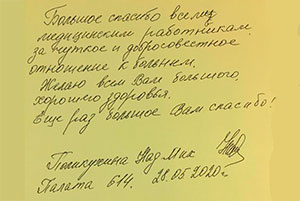 Большое спасибо всем
медицинским работникам
за чуткое и добросовестное
отношение к больным.
Желаю всем Вам большого,
хорошего здоровья.
Еще раз большое Вам спасибо!
Поликучина Над Мих
Палата 614. 28.05 2020г.